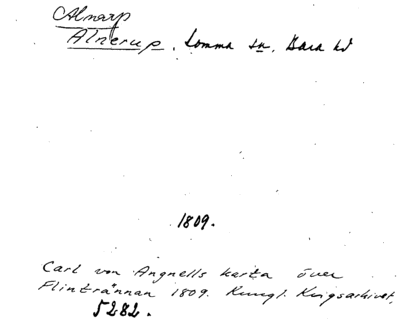 Alnarp
Alnerup, Lomma sn, Bara hd
1809.
Carl von Angnells karta över
Flintrännan 1809. Kungl. Krigsarkivet.
5282.